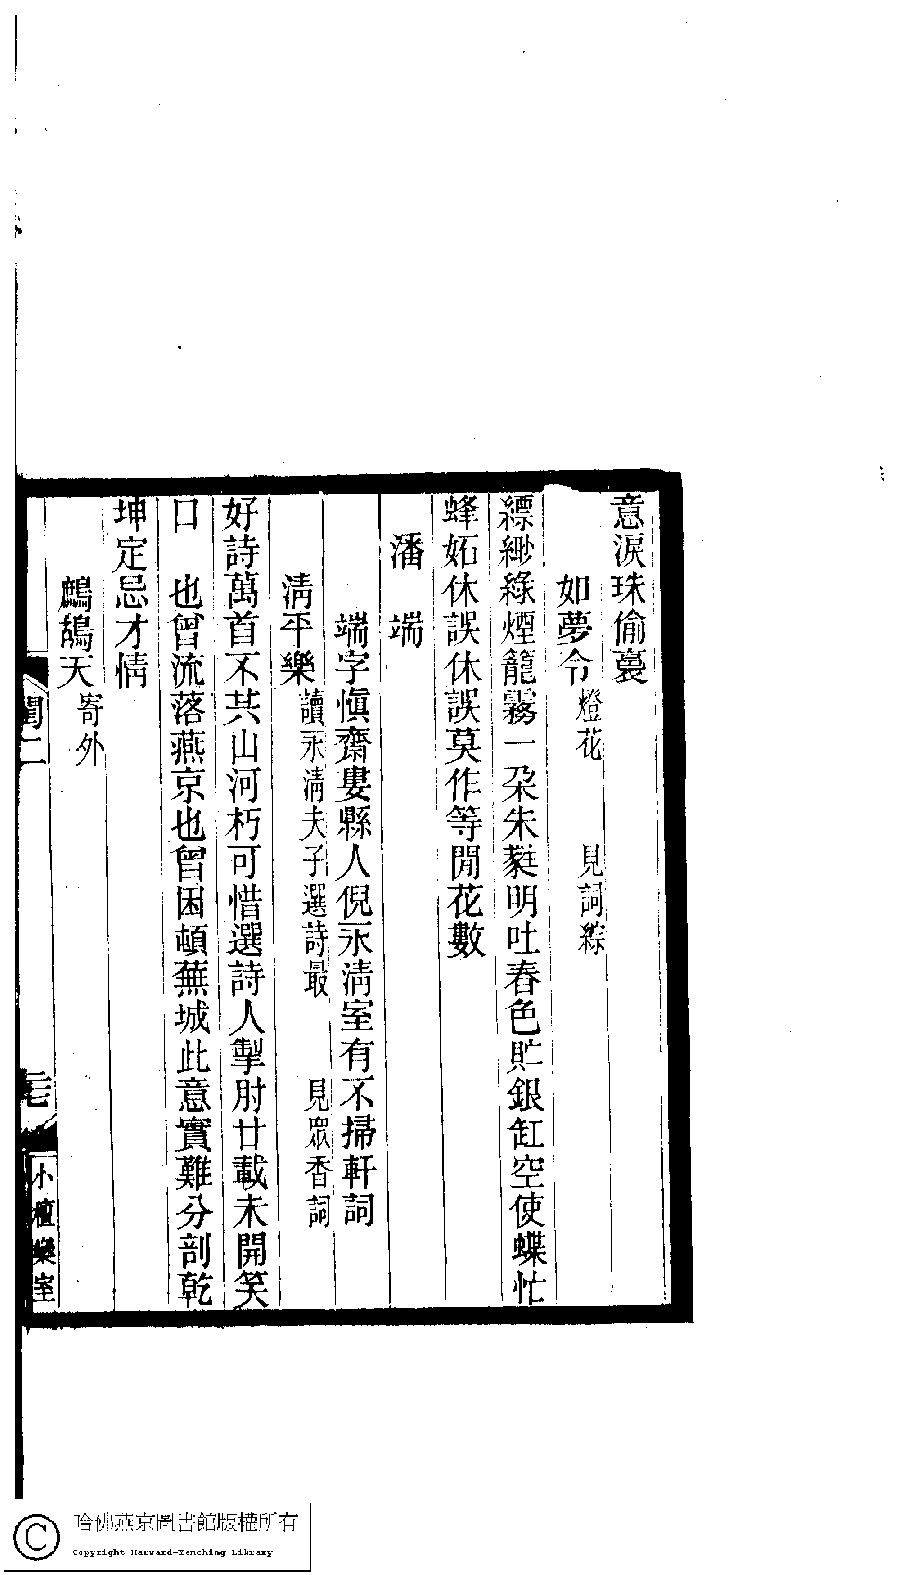 意淚珠偷裛
如夢令 燈花 見詞綜
縹緲綠煙籠霧一朶朱蕤明吐春色貯銀缸空使蝶忙
蜂妬休誤休誤莫作等閒花數
潘端
端字愼齋婁縣人倪永清室有不掃軒詞
淸平樂 讀永淸夫子選詩最 見眾香詞
好詩萬首不共山河朽可惜選詩人掣肘廿載未開笑
口 也曾流落燕京也曾困頓蕪城此意實難分剖乾
坤定忌才情
鷓鴣天 寄外
閨二
小檀欒室
哈佛燕京圖書館版權所有
Copyright Harvard-Yenching Library